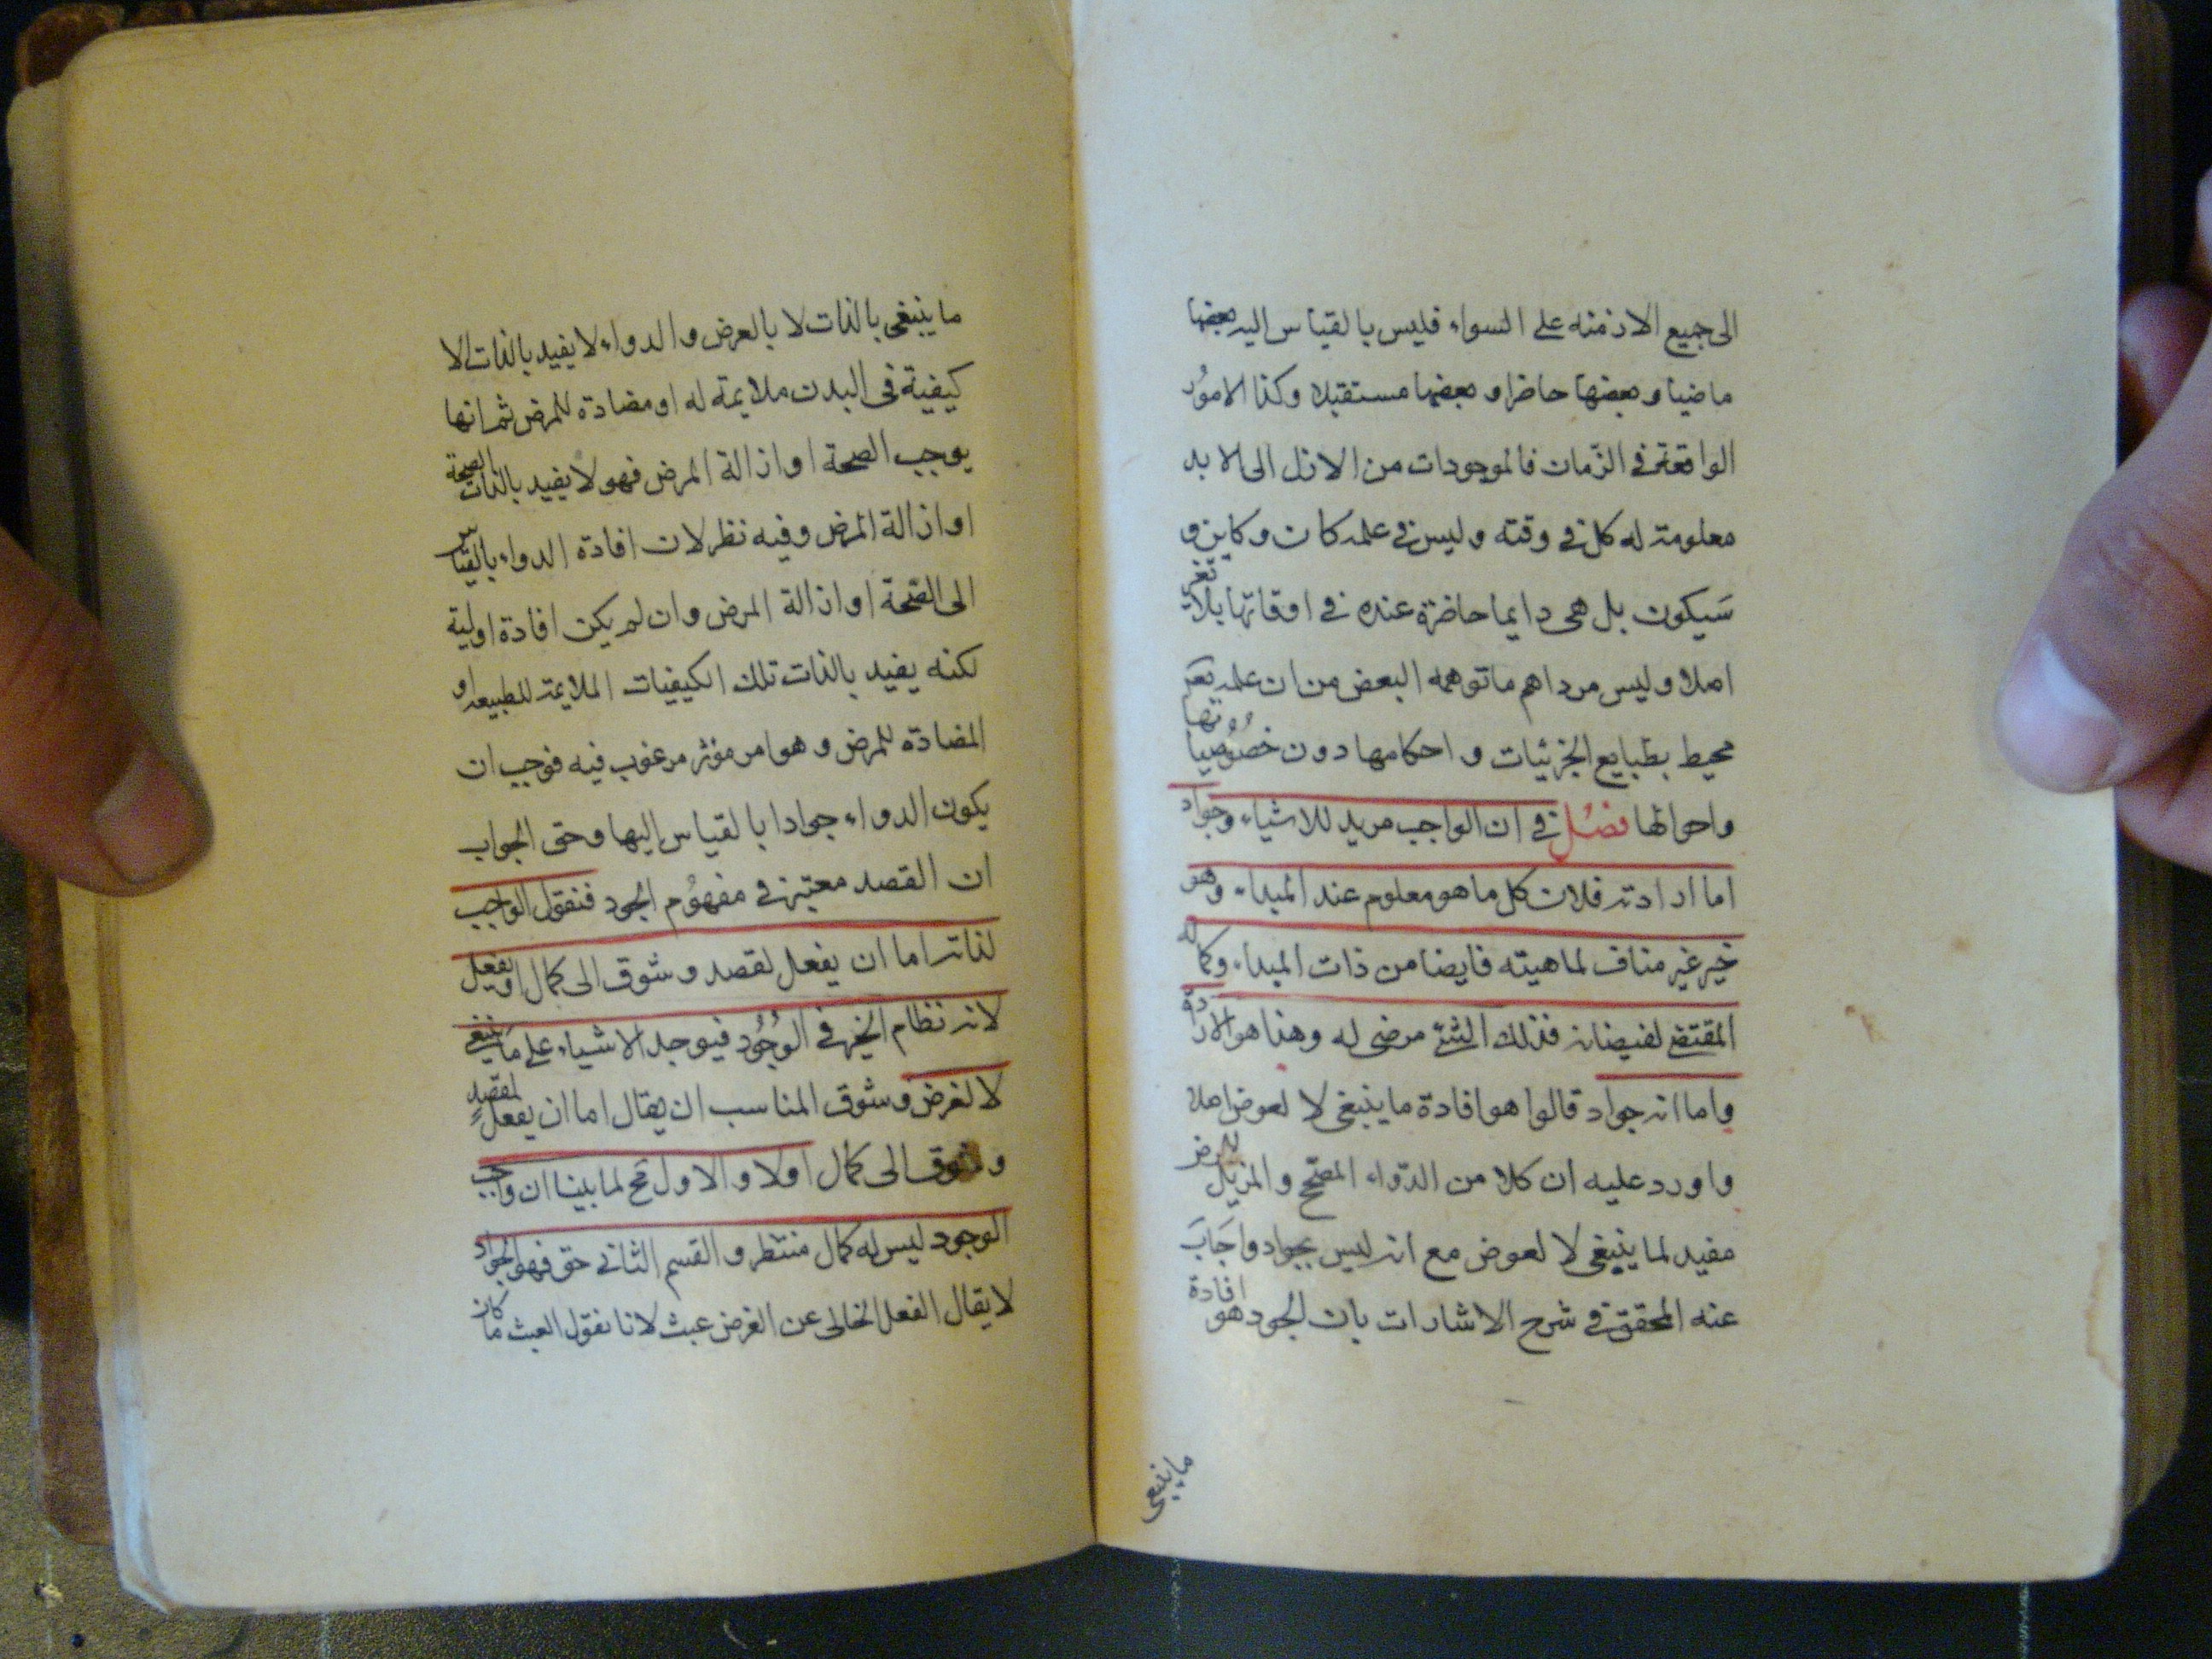 الى جميع الازمنة على السواء فليس بالقياس اليه بعضها
ماضيا وبعضها حاضرا وبعضها مستقبلا وكذا الامور
الواقعة في الزمان فالموجودات من الازل الى الابد
معلومة له كل في وقته وليس في علمه كان وكاين و
سيكون بل هي دايما حاضرة عنده في اوقاتها بلا تغير
اصلا وليس مرداهم ما توهمه البعض من ان علمه تعم
محيط بطبايع الجزئيات و احكامها دون خصوصياتها
واحوالها فصل في ان الواجب مريد للاشياء وجواد
اما ارادته فلان كل ما هو معلوم عند المبداء وهو
خير غير مناف لماهيته فايضا من ذات المبداء وكماله
المقتضى لفيضانه فذلك الشئ مرضى له وهذا هو الارادة
واما انه جواد قالوا هو افادة ما ينبغى لا لعوض اصلا
واورد عليه ان كلا من الدواء المصحح والمزيل للمرض
مفيد لما ينبغى لا لعوض مع انه ليس بجواد واجاب
عنه المحقق في شرح الاشارات بان الجود هو افادة
ما ينبغى
ما ينبغى بالذات لا بالعرض والدواء لا يفيد بالذات الا
كيفية في البدن ملايمة له او مضادة للمرض ثم انها
يوجب الصحة او ازالة المرض فهو لا يفيد بالذات الصحة
او ازالة المرض وفيه نظر لان افادة الدواء بالقياس
الى الصحة او ازالة المرض وان لم يكن افادة اولية
لكنه يفيد بالذات تلك الكيفيات الملايمة للطبيعة او
المضادة للمرض و هو امر مؤثر مرغوب فيه فوجب ان
يكون الدواء جوادا بالقياس اليها وحق الجواب
ان القصد معتبر في مفهوم الجود فنقول الواجب
لذاته اما ان يفعل لقصد و شوق الى كمال او يفعل
لانه نظام الخير في الوجود فيوجد الاشياء على ما ينبغى
لا لغرض وشوق المناسب ان يقال اما ان يفعل لقصد
و شوق الى كمال اولا والاول مح لما بينا ان واجب
الوجود ليس له كمال منتظر و القسم الثاني حق فهو الجواد
لا يقال الفعل الخالى عن الغرض عبث لانا نقول العبث ما كان